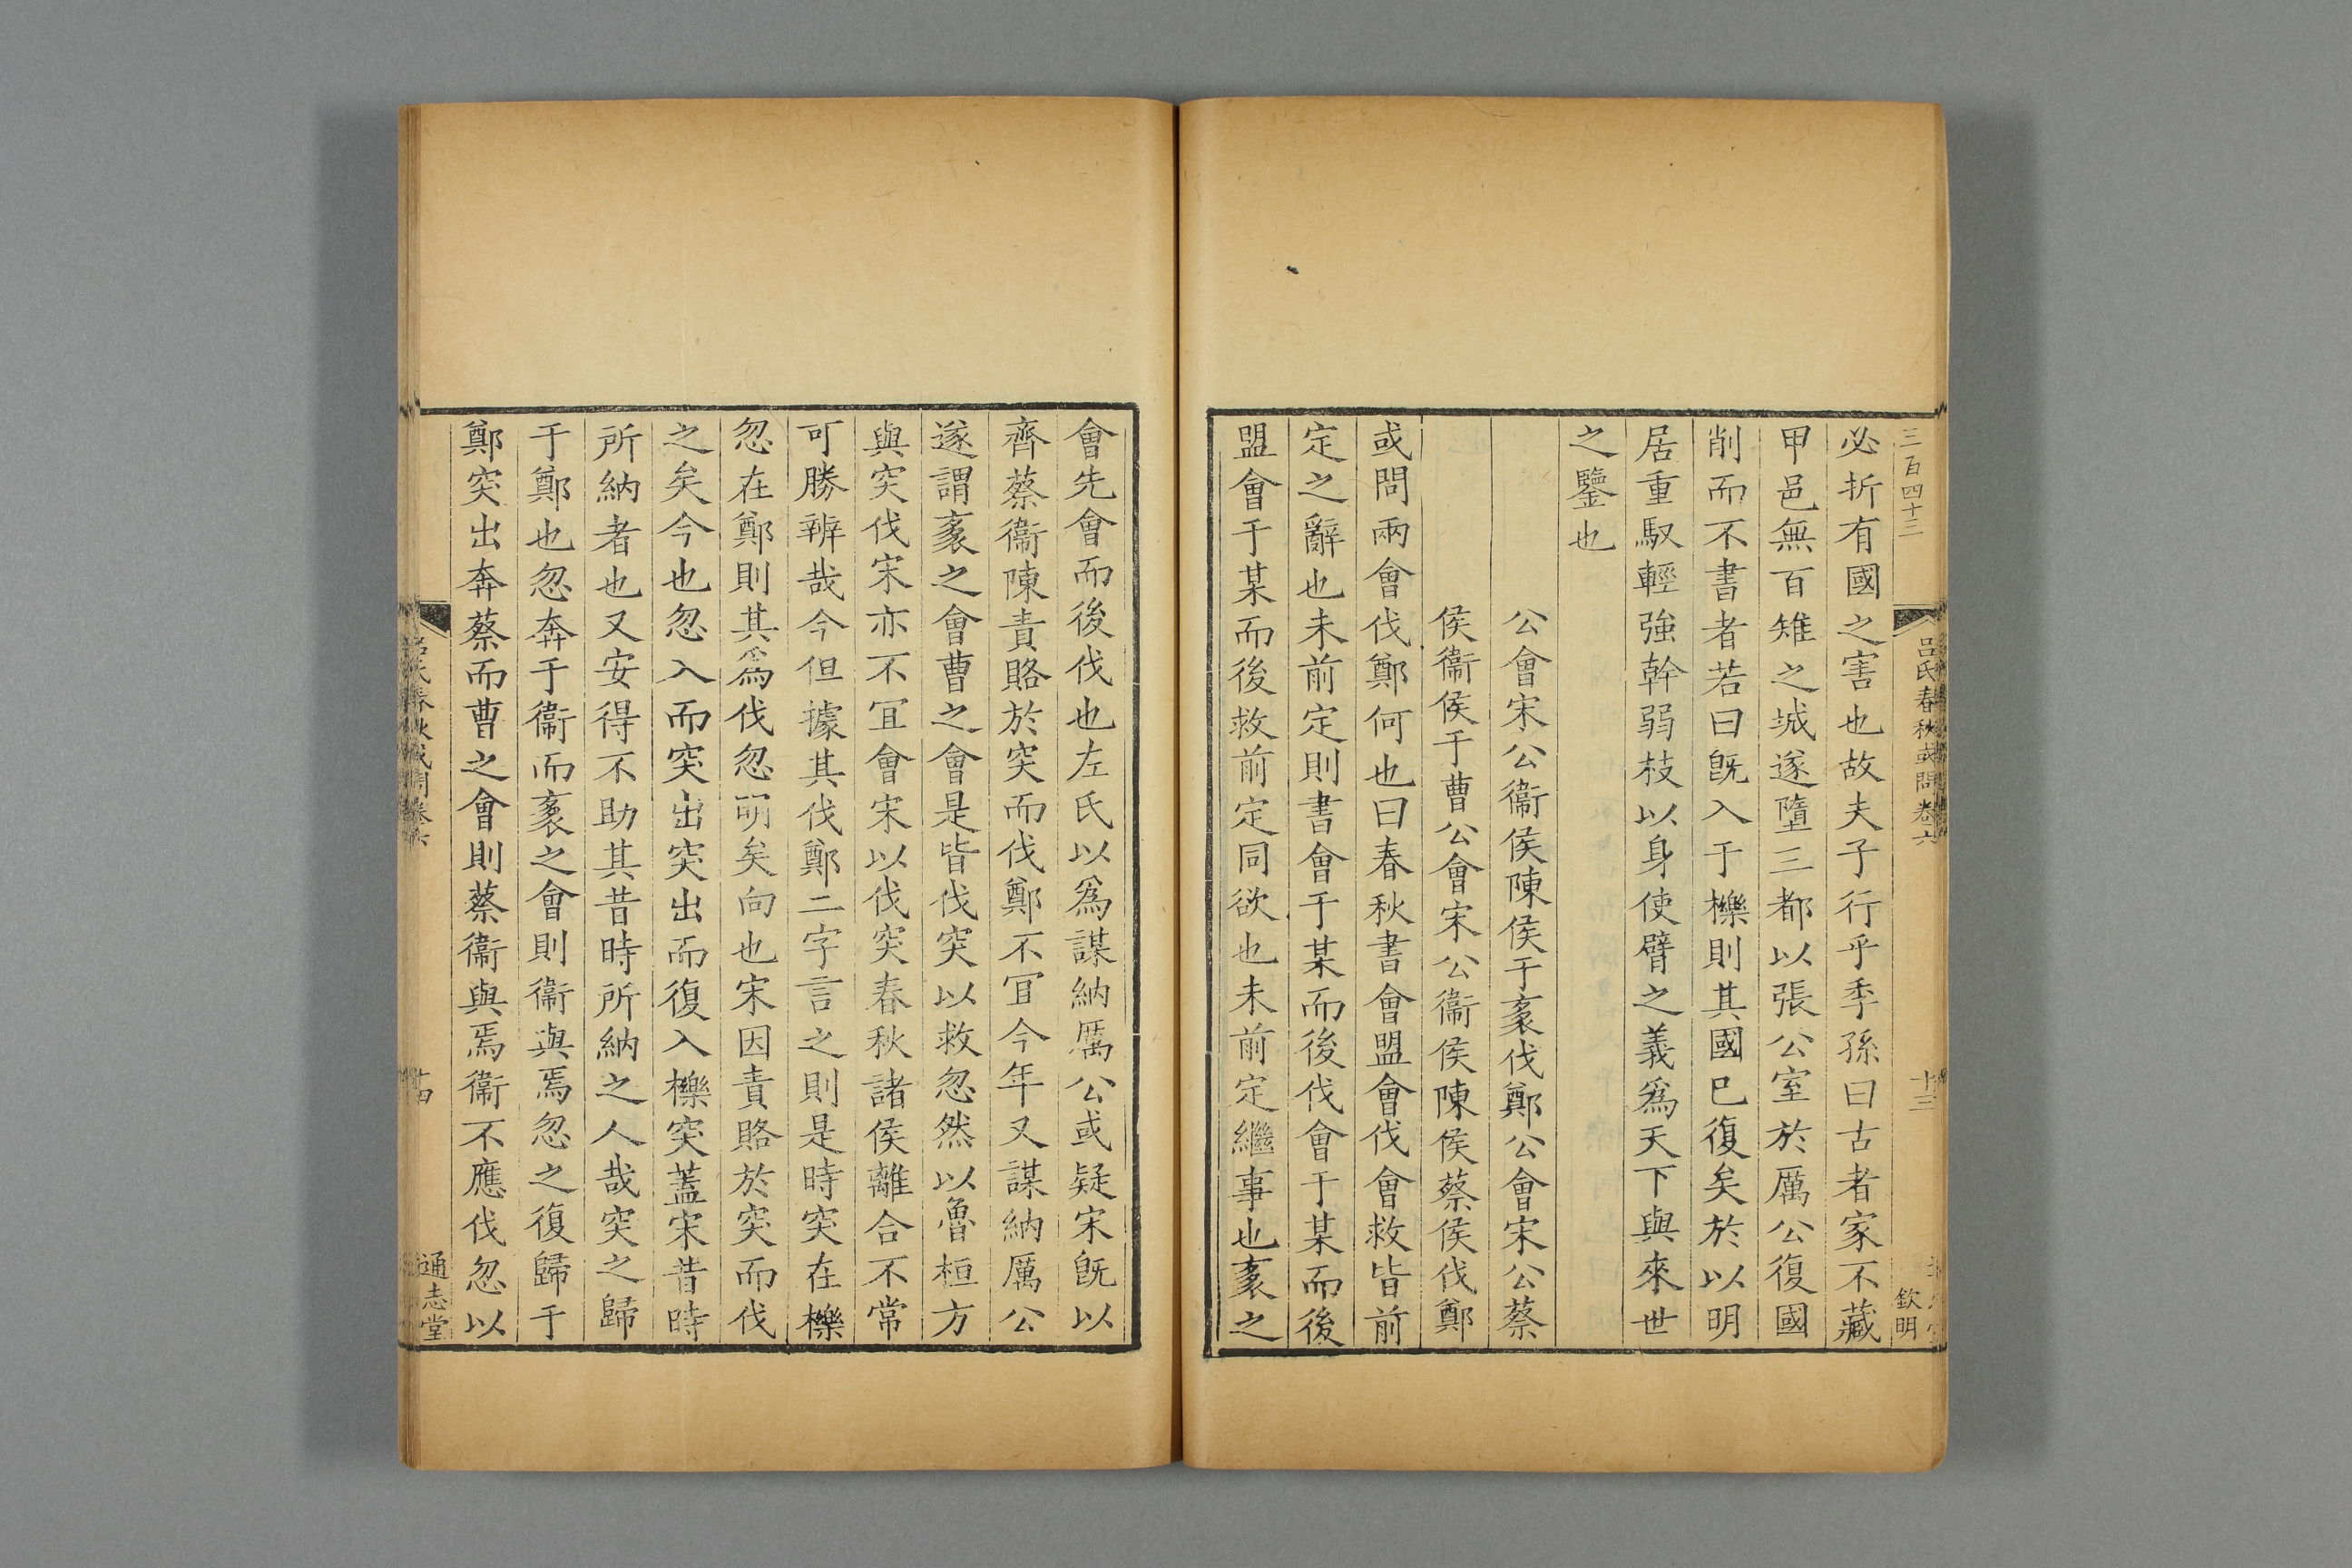 三百四十三
呂氏春秋或問卷六
十三
欽明
必折有國之害也故夫子行乎季孫曰古者家不藏
甲邑無百雉之城遂墮三都以張公室於厲公復國
削而不書者若曰旣入于櫟則其國已復矣於以明
居重馭輕強幹弱枝以身使臂之義爲天下與來世
之鑒也
公會宋公衞侯陳侯于袲伐鄭公會宋公蔡
侯衞侯于曹公會宋公衞侯陳侯蔡侯伐鄭
或問兩會伐鄭何也曰春秋書會盟會伐會救皆前
定之辭也未前定則書會于某而後伐會于某而後
盟會于某而後救前定同欲也未前定繼事也袲之
會先會而後伐也左氏以爲謀納厲公或疑宋旣以
齊蔡衞陳責賂於突而伐鄭不冝今年又謀納厲公
遂謂袲之會曹之會是皆伐突以救忽然以魯桓方
與突伐宋亦不冝會宋以伐突春秋諸侯離合不常
可勝辨哉今但據其伐鄭二字言之則是時突在櫟
忽在鄭則其爲伐忽明矣向也宋因責賂於突而伐
之矣今也忽入而突出突出而復入櫟突蓋宋昔時
所納者也又安得不助其昔時所納之人哉突之歸
于鄭也忽奔于衞而袲之會則衞與焉忽之復歸于
鄭突出奔蔡而曹之會則蔡衞與焉衞不應伐忽以
呂氏春秋或問卷六
十四
通志堂